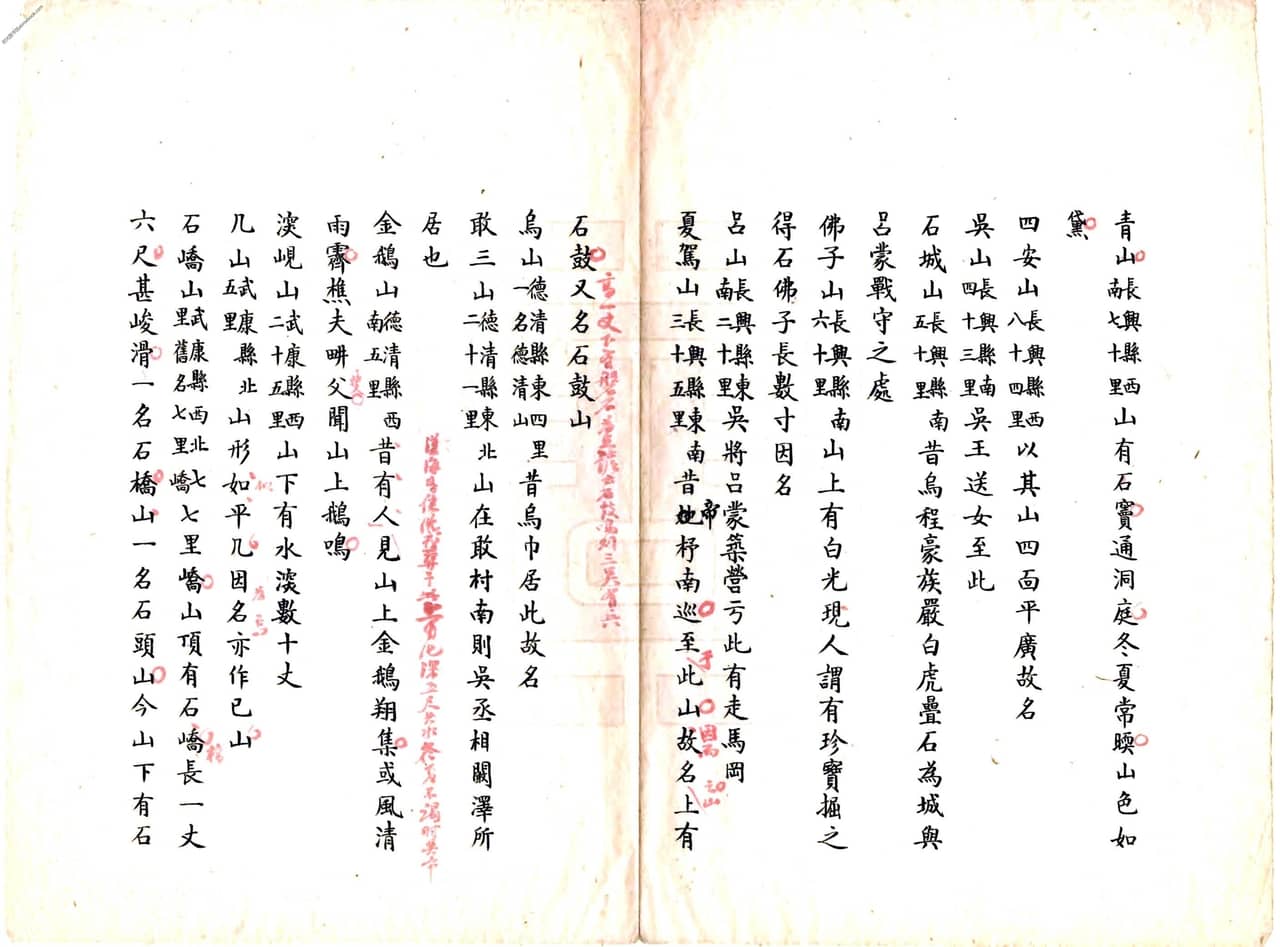 青山長興縣西南七十里山有石竇通洞庭冬夏常暎山色如
黛
四安山長興縣西八十四里以其山四面平廣故名
吳山長興縣南四十三里吳王送女至此
石城山長興縣南五十里昔烏程豪族嚴白虎疊石為城與
呂蒙戰守之處
佛子山長興縣南六十里山上有白光現人謂有珍寶掘之
得石佛子長數寸因名
呂山長興縣東南二十里吳將呂蒙築營亏此有走馬岡
夏駕山長興縣東南三十五里昔帝杼南巡至此山故名上有
于
因而
之山
石鼓又名石鼓山
高一丈下有盤石為足諺云石鼓鳴則三吳有兵
烏山德清縣東四里一名德清山昔烏巾居此故名
敢三山德清縣東北二十一里山在敢村南則吳丞相闞澤所
居也
金鵝山德清縣西南五里昔有人見山上金鵝翔集或風清
雨霽樵夫畊父聞山上鵝鳴
淡峴山武康縣西二十五里山下有水淡數十丈
几山武康縣北五里山形如平几因名亦作已山
似
石嶠山武康縣西北七里舊名七里嶠七里嶠山頂有石嶠長一丈
橋
六尺甚峻滑一名石橋山一名石頭山今山下有石